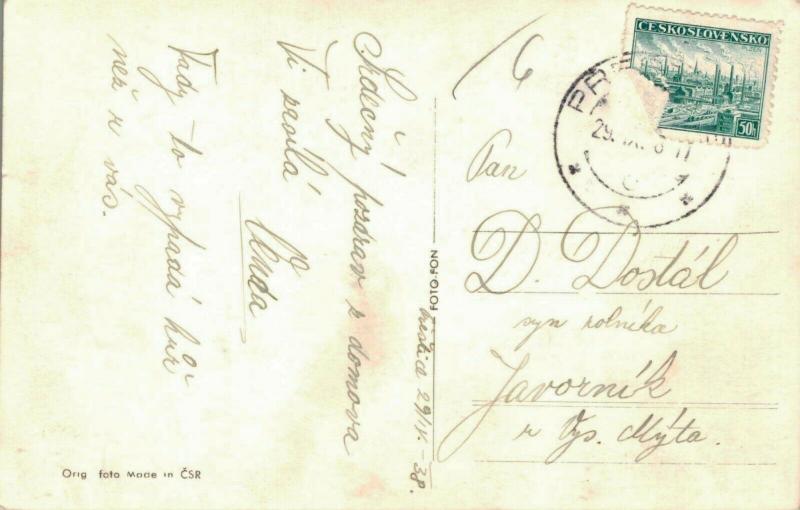 Srdečný pozdrav z domova
Vi posílá
Vlnďa
Tady to vypadá hůř
než u vás.
29/IX. - 38.
FOTO-FON
6
ČESKOSLOVENSKO
PLZEŇ
50h
29. IX.
Pan
D. Dostál
syn rolníka
Javorník
u Vys. Mýta.
Orig. foto Made in ČSR